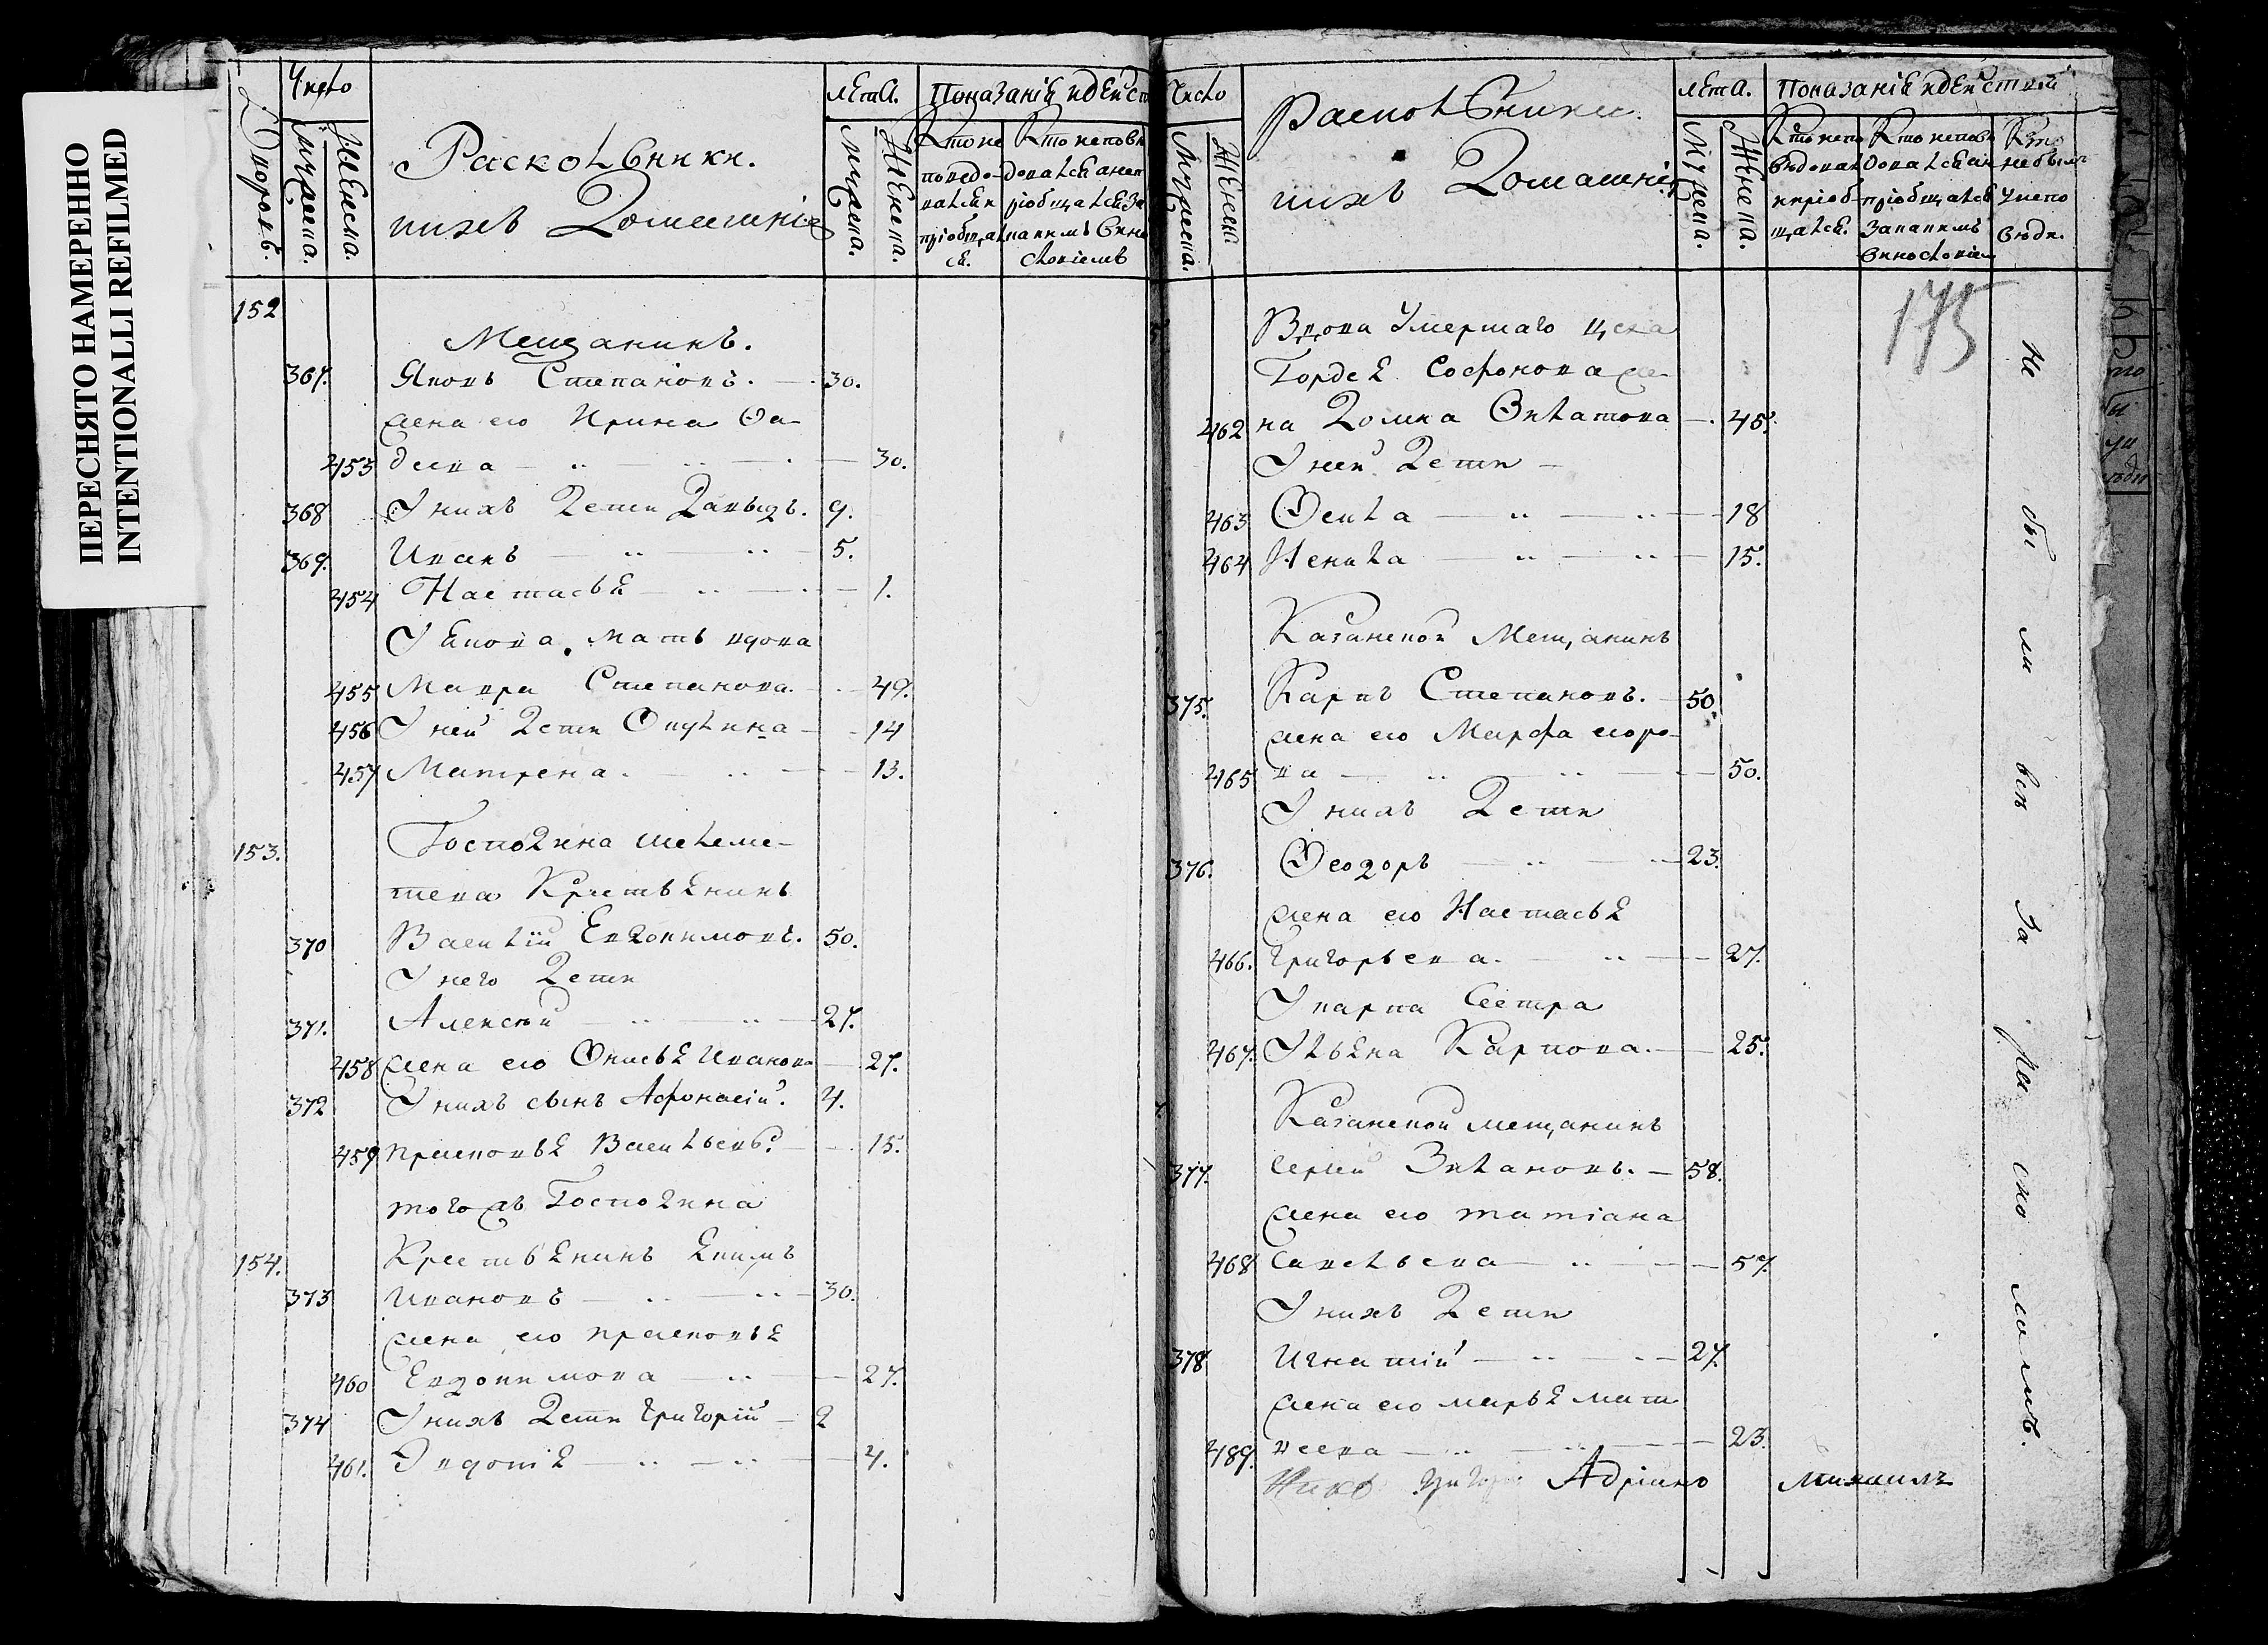 ПЕРЕСНЯТО НАМЕРЕННО
INTENTIONALLI REFILMED
Число
Дворовъ.
Мужеска.
Женска.
Расколники
ихъ Домашніе
лета.
Мужеска.
Женска.
Показаніе действ
Кто исповедовался и пріобщался.
Кто исповедовался а не пріобщался за каким винословіемъ
152
Мещанинъ.
367. Яковъ Степановъ. 30.
жена его Ирина Фа-
453 деева 30.
368 У нихъ дети Давыдъ. 9.
369. Иванъ 5.
454 Настасья 1.
У Якова мать вдова
455 Мавра Степанова. 49.
456 У ней дети Окулина 14
457 Матрена. 13.
153. Господина Шелеме-
тева Крестьянинъ
370 Василій Евдокимовъ. 50.
У него дети
371. Алексей 27.
458 жена его Онисья Иванова 27.
372 У нихъ сынъ Афонасій. 4.
459 Прасковья Васильева 15.
того жъ Господина
154. Крестьянинъ Екимъ
373 Ивановъ 30.
жена его Прасковья
460 Евдокимова 27.
374 У нихъ дети Григорій 2
461. Авдотья 4.
Число
Мужеска.
Женска.
Расколники
ихъ Домашніе
лета.
Мужеска.
Женска.
Показаніе действій
Кто исповедовал и пріобщался.
Кто исповедовался а не пріобщался за каким винословіем
Кто не был у исповеди.
175
Вдова Умершаго
Гордея Софонова же-
462 на Домна Филатова 45.
У ней дети
463 Фекла 18
464 Ненила 15.
Казанской Мещанинъ
375. Карпъ Степановъ. 50.
жена его Марфа егоро-
465 ва 50.
У нихъ дети
376. Феодоръ 23.
жена его Настасья
466. Григорьева. 27.
У карпа Сестра
467. Ульяна Карпова. 25.
Казанской мещанинъ
377. Сергей 58.
жена его татіана
468 Савельева 57.
У нихъ дети
378 Игнатій 27.
жена его марья мат
489. веева 23.
Не были все За расколомъ.
Адріано Михаилъ